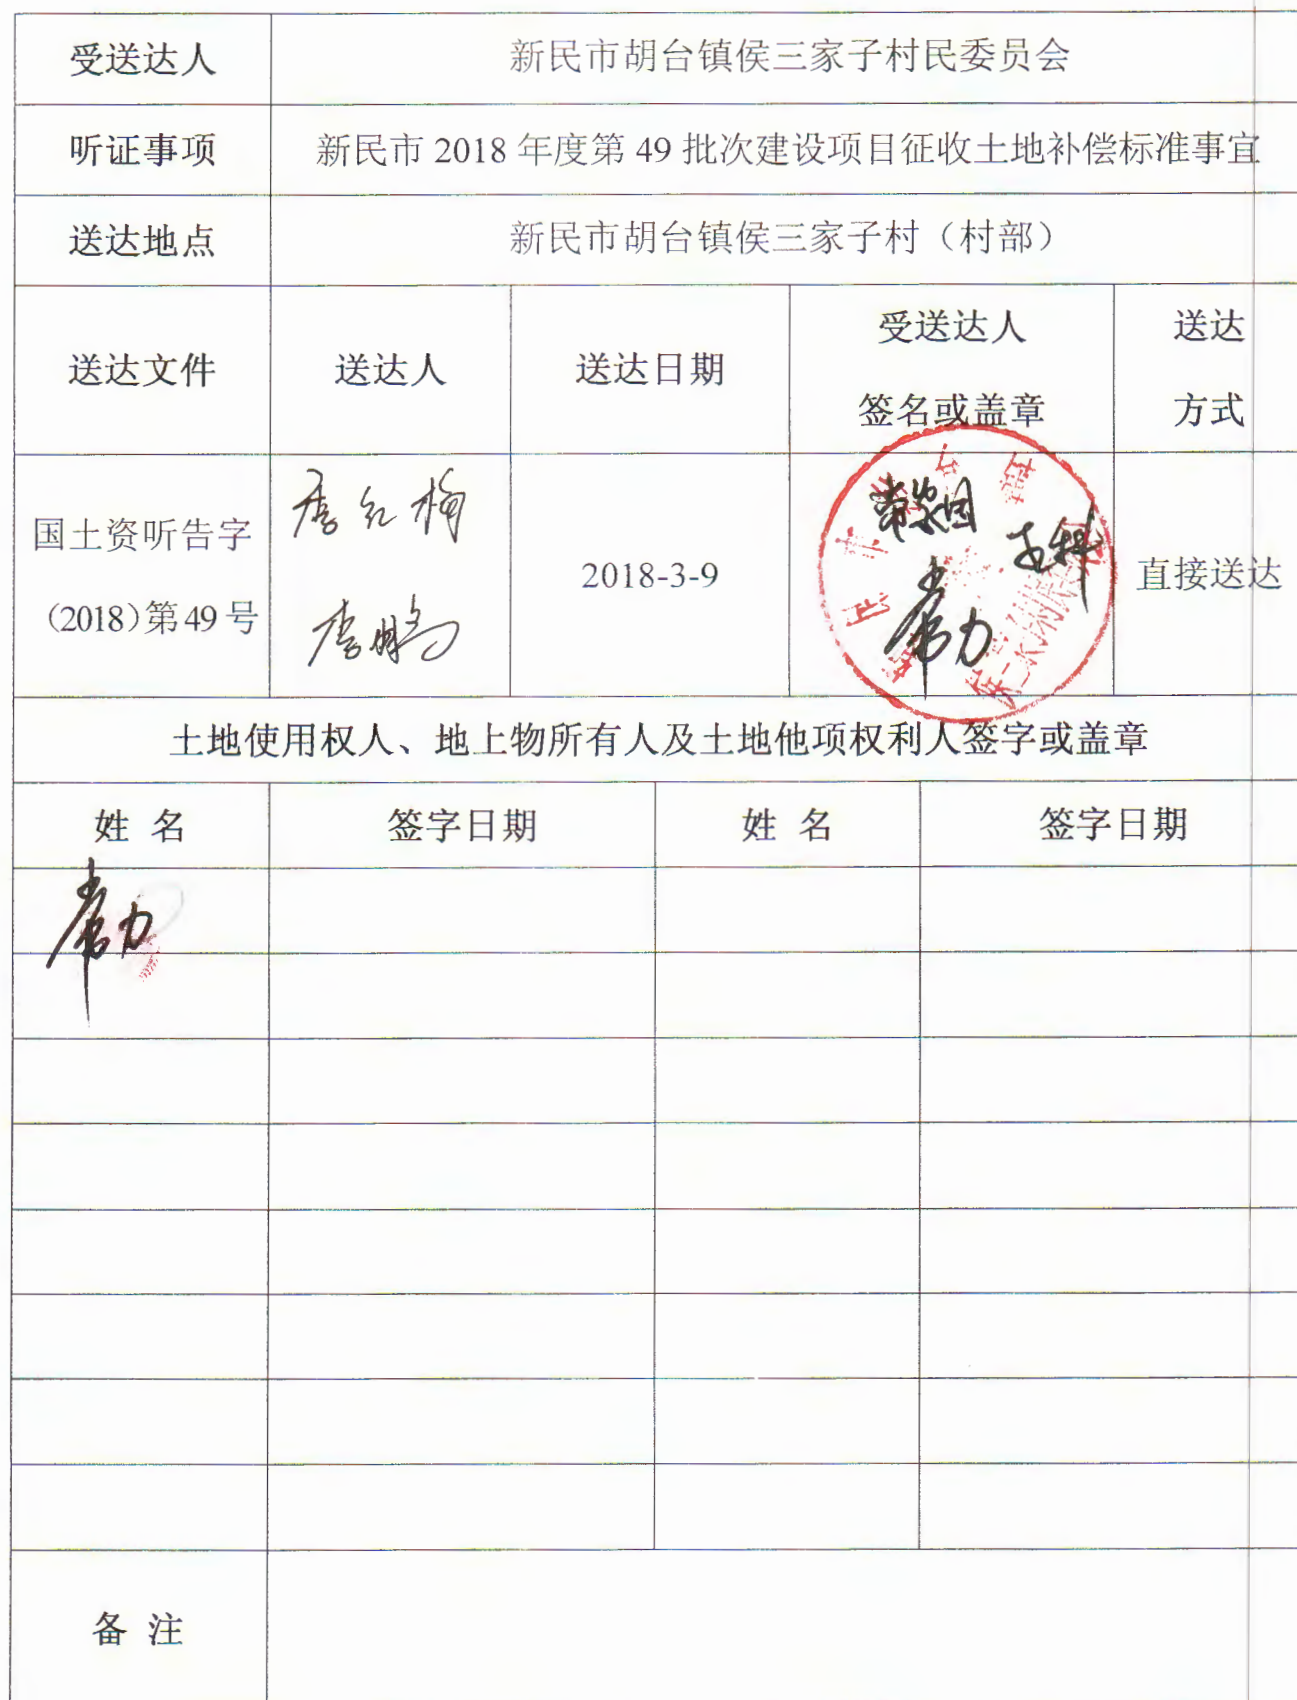 受送达人 新民市胡台镇侯三家子村民委员会
听证事项 新民市 2018 年度第 49 批次建设项目征收土地补偿标准事宜
送达地点 新民市胡台镇侯三家子村（村部）
送达文件 送达人 送达日期 受送达人 签名或盖章 送达 方式
国土资听告字
（2018）第 49 号 李红梅 李鹏 2018-3-9 常力 直接送达
土地使用权人、地上物所有人及土地他项权利人签字或盖章
姓 名 签字日期 姓 名 签字日期
常力
备 注